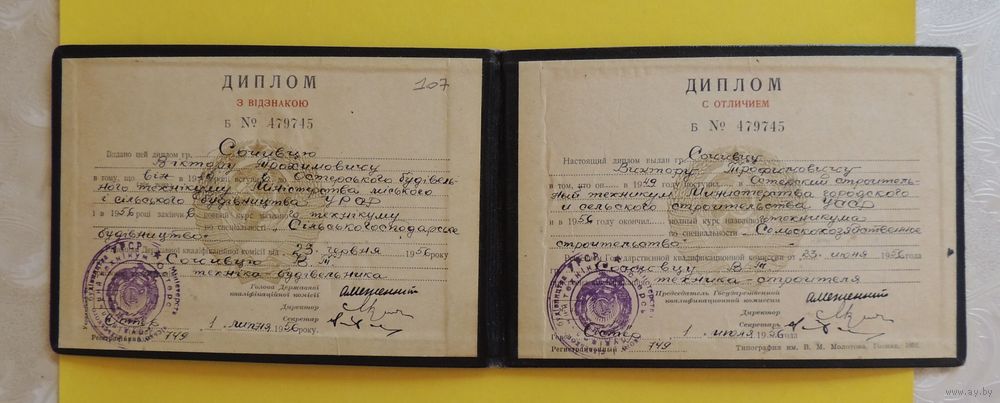 ДИПЛОМ
З ВІДЗНАКОЮ
Б № 479745
107
Видано цей диплом гр. Сочивцю
Віктору Трохимовичу
в тому, що він в 1949 році вступив в Остерського будівель-
ного технікуму Міністерства міського
і сільського будівництва УРСР
і в 1956 році закінчив повний курс технікуму
по спеціальності „Сільськогосподарське
будівництво“
Державної кваліфікаційної комісії від 23 червня 1956 року
Сочивцю В. Т.
техніка-будівельника
Голова Державної
кваліфікаційної комісії
Директор
Секретар
1 липня 1956 року.
Реєстраційний № 749
ДИПЛОМ
С ОТЛИЧИЕМ
Б № 479745
Настоящий диплом выдан гр. Сочивцу
Виктору Трофимовичу
в том, что он в 1949 году поступил в Остерский строитель-
ный техникум Министерства городского
и сельского строительства УССР
и в 1956 году окончил полный курс названного техникума
по специальности „Сельскохозяйственное
строительство“
Государственной квалификационной комиссии от 23 июня 1956 года
Сочивцу В. Т.
техника-строителя
Председатель Государственной
квалификационной комиссии
Директор
Секретарь
1 июля 1956 года
Регистрационный № 749
Типография им. В. М. Молотова, Гознак.
www.ay.by